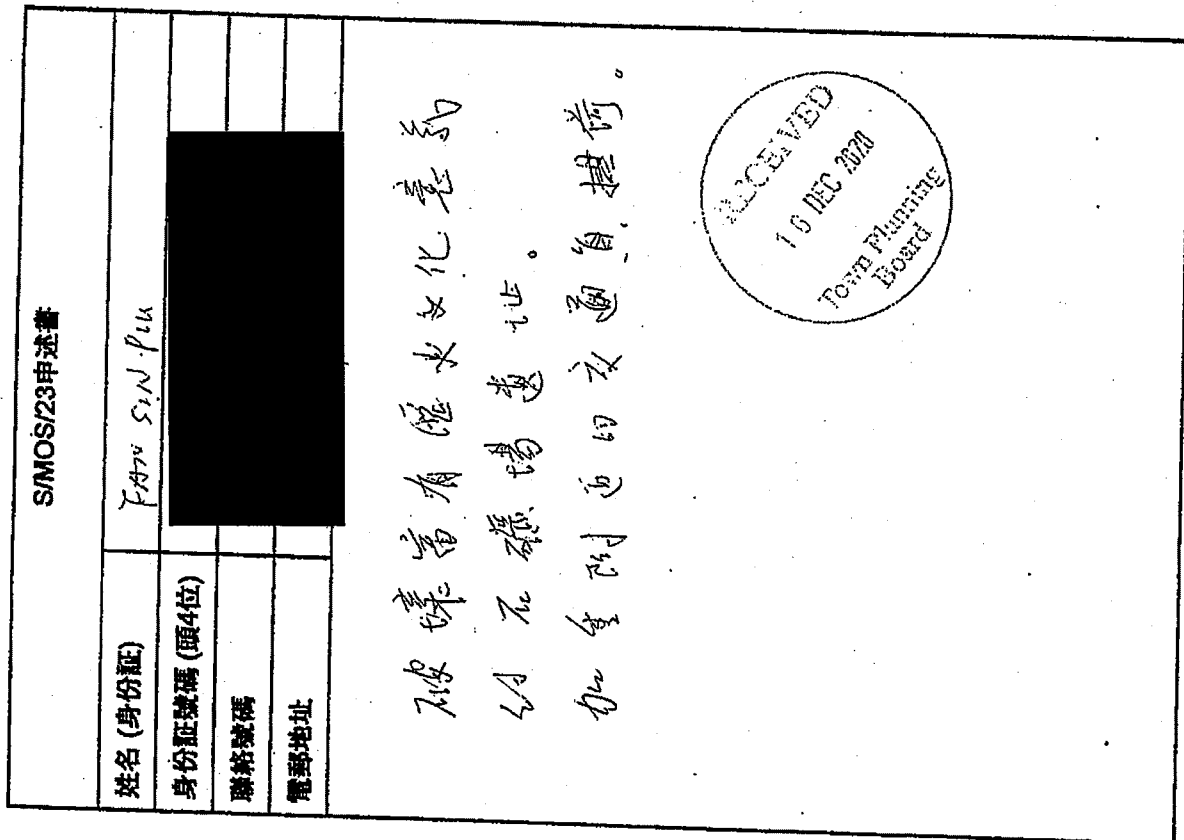 S/MOS/23申述書
姓名 (身份証) FAN SIN PIU
身份証號碼 (頭4位)
聯絡號碼
電郵地址
破壞富有歷史文化意義
的石礦場遺址。
加重附近的交通負擔荷。
RECEIVED
16 DEC 2020
Town Planning
Board